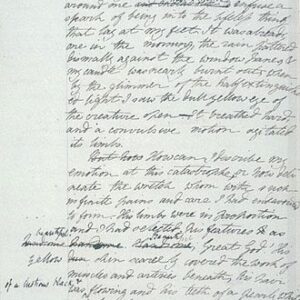 around one infuse a
spark of being into the lifeless thing
that lay at my feet. It was already
one in the morning, the rain pattered
dismally against the window panes &
my candle was nearly burnt out, when
by the glimmer of the half extinguish
ed light I saw the dull yellow eye of
the creature open — It breathed hard,
and a convulsive motion agitated
its limbs.
But how How can I describe my
emotion at this catastrophe; or how deli
neate the wretch whom with such
infinite pains and care I had endeavoured
to form. His limbs were in proportion
and I had selected his features as
beautiful
handsome Handsome; Great God! His
yellow skin scarcely covered the work of
muscles and arteries beneath; his hair
of a lustrous black &
was flowing and his teeth of a pearly